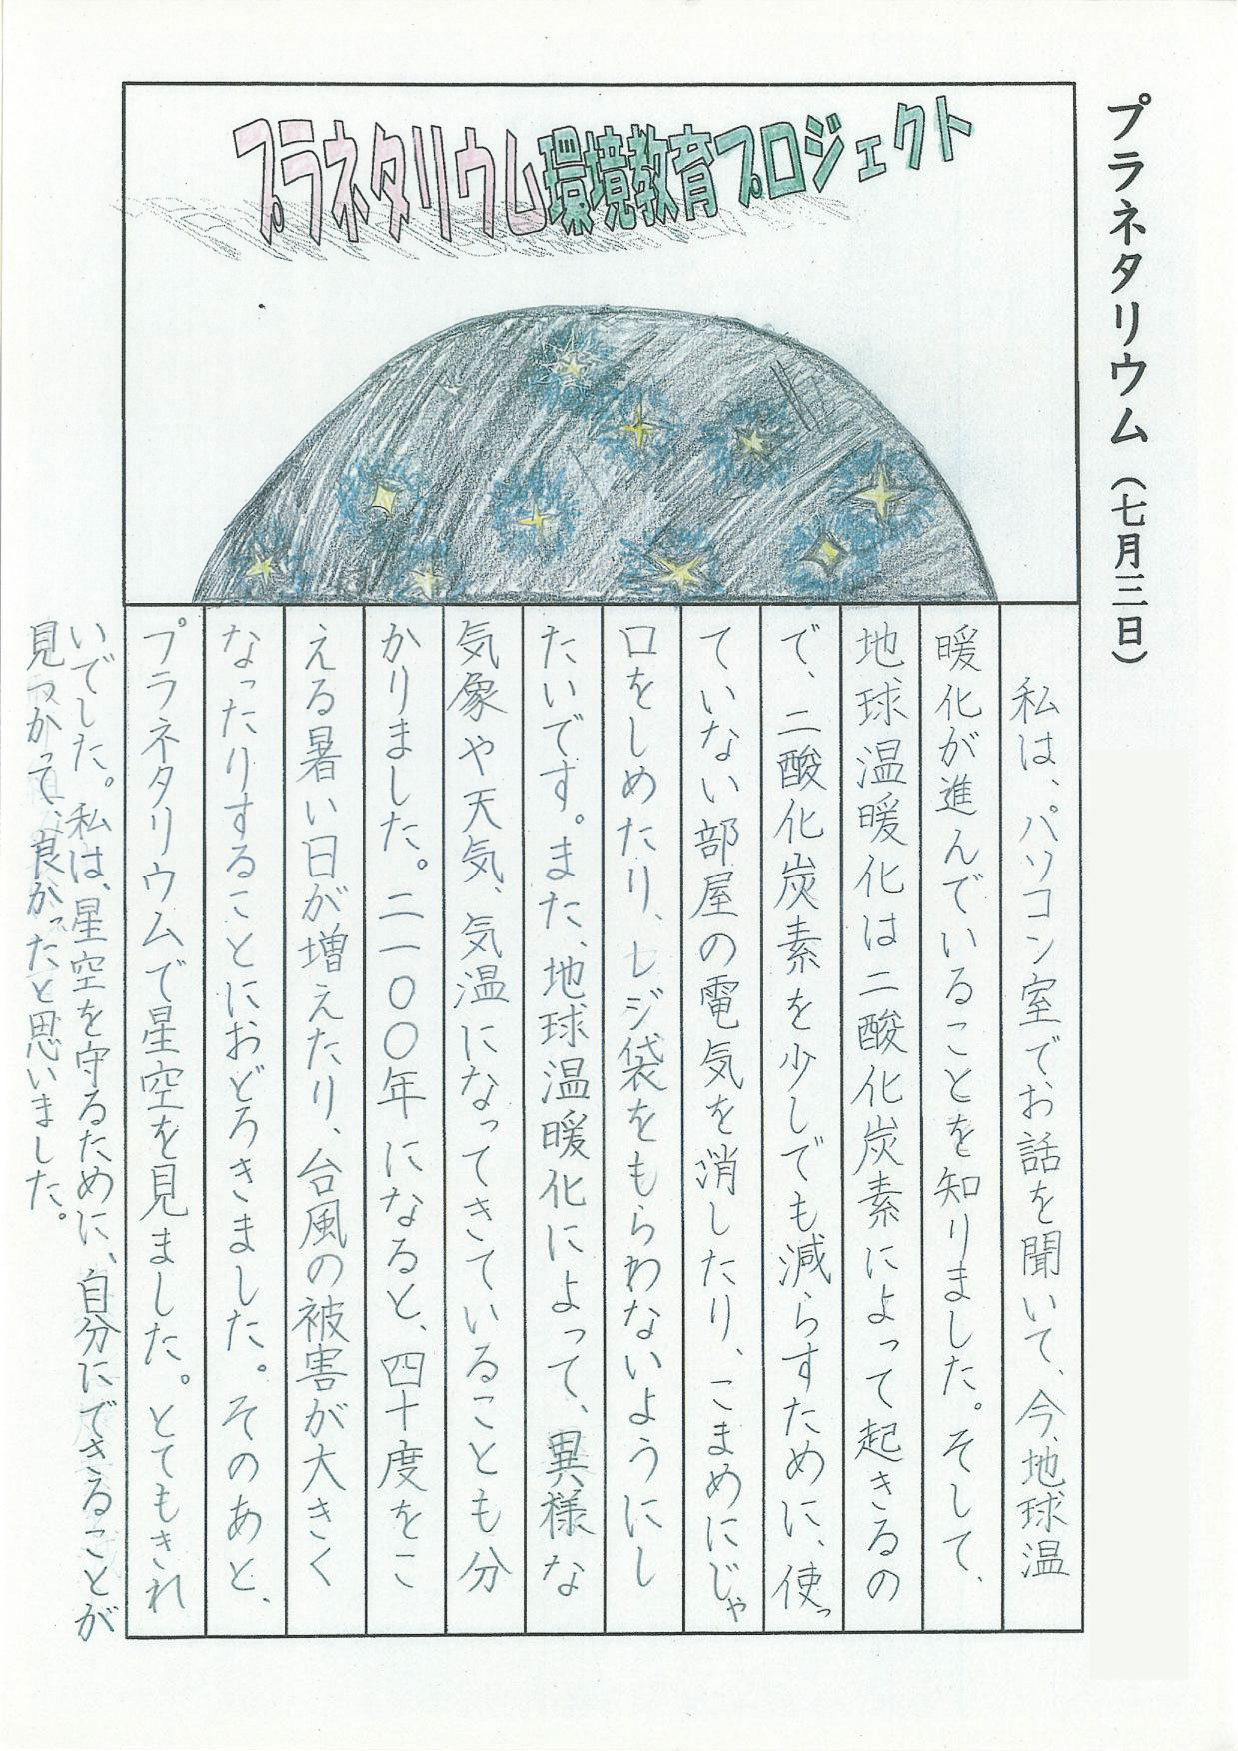 プラネタリウム（七月三日）
プラネタリウム環境教育プロジェクト
私は、パソコン室でお話を聞いて、今、地球温
暖化が進んでいることを知りました。そして、
地球温暖化は二酸化炭素によって起きるの
で、二酸化炭素を少しでも減らすために、使っ
ていない部屋の電気を消したり、こまめにじゃ
口をしめたり、レジ袋をもらわないようにし
たいです。また、地球温暖化によって、異様な
気象や天気、気温になってきていることも分
かりました。二一〇〇年になると、四十度をこ
える暑い日が増えたり、台風の被害が大きく
なったりすることにおどろきました。そのあと、
プラネタリウムで星空を見ました。とてもきれ
いでした。私は、星空を守るために、自分にできることが
見つかって、良かったと思いました。